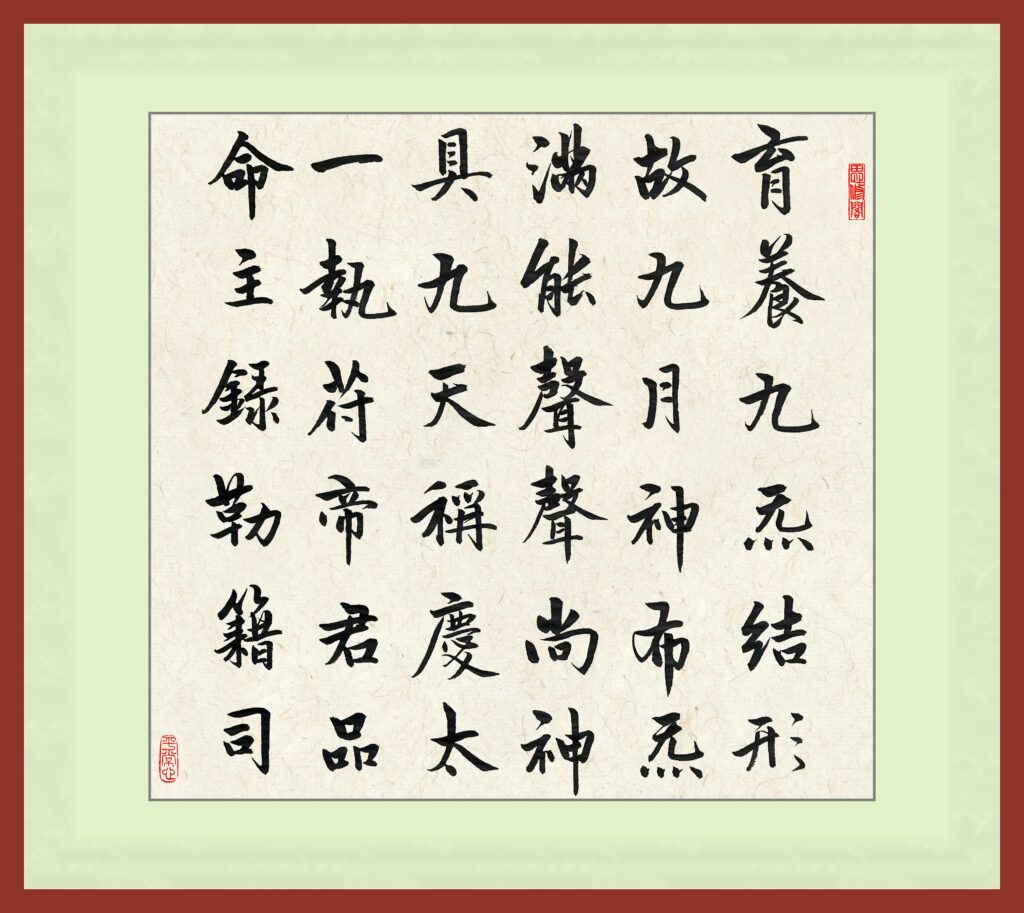 育養九炁結形
故九月神布炁
滿能聲聲尚神
具九天稱慶太
一執苻帝君品
命主錄勒籍司
平常心